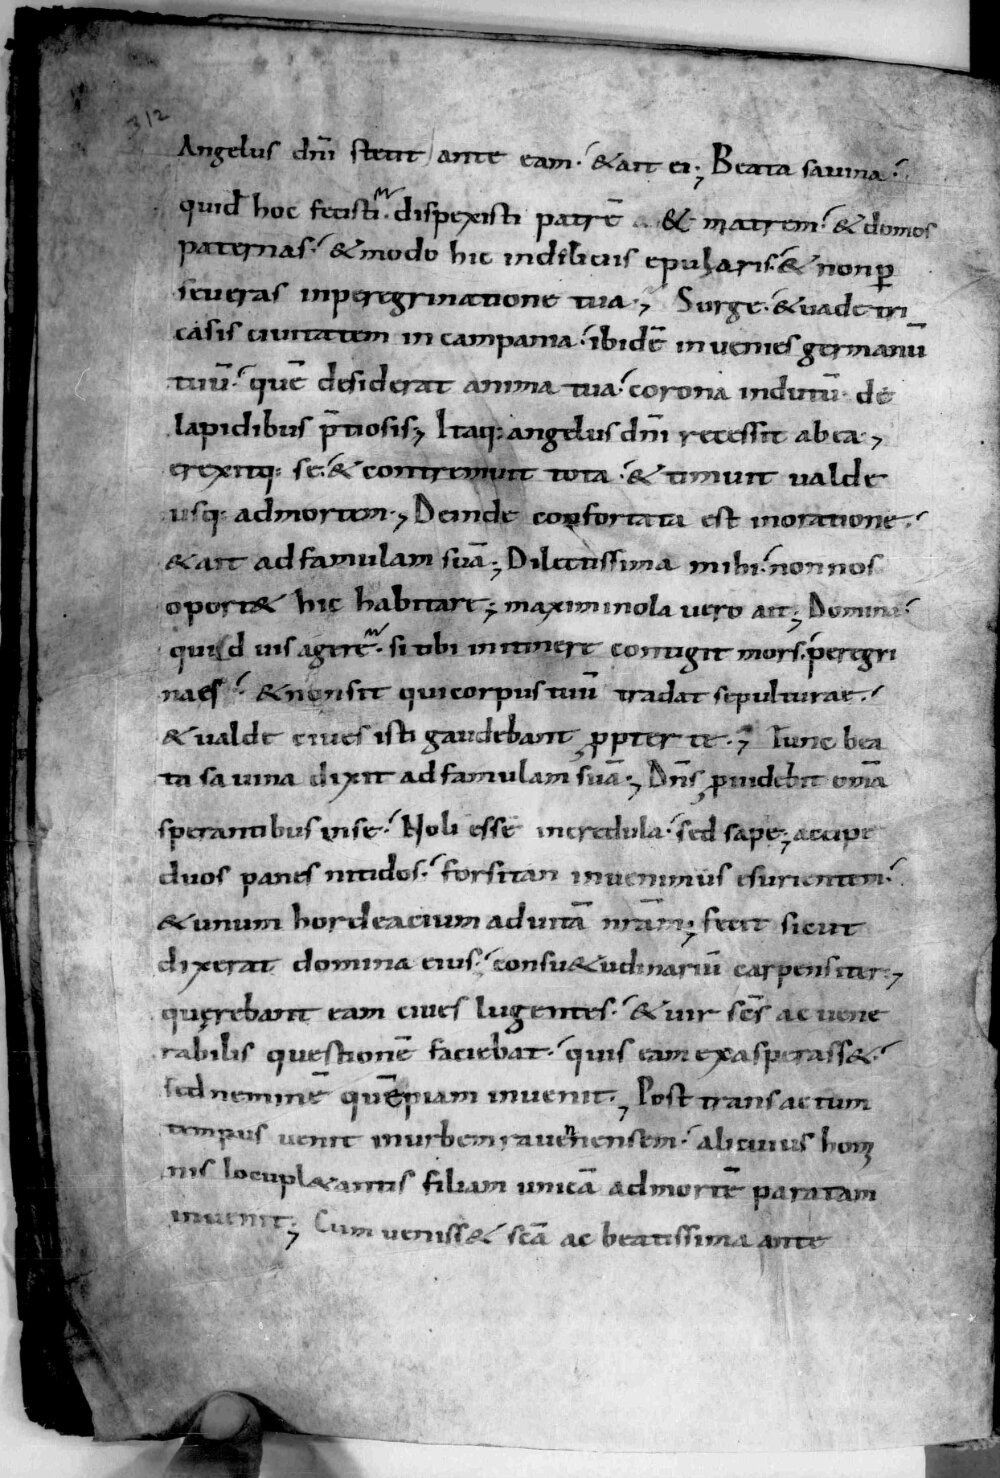 312
Angelus dn̄i stetit ante eam · & ait ei ; Beata sauina ·
quid hoc fecisti · dispexisti patrē & matrem · & domos
paternas · & modo hic indiliciis epularis · & nonp̱
seueras inperegrinatione tua ; Surge · & uade tri
casis ciuitatem in campania · ibidē inuenies germanū
tuū · quē desiderat anima tua · corona indutū de
lapidibus p̄tiosis ; Itaq: angelus dn̄i recessit ab ea ;
erexitq: se · & contremuit tota · & timuit ualde
usq: admortem ; Deinde confortata est inoratione ·
& ait ad famulam suā ; Dilectissima mihi · non nos
oport& hic habitare ; maximinola uero ait ; Domina ·
quid uis agere · si tibi initinere contigit mors · peregri
naes · & nonsit qui corpus tuū tradat sepulturae ·
& ualde ciues isti gaudebant ꝓpter te ; Tunc bea
ta sauina dixit ad famulam suā ; Dn̄s ꝓuidebit omā
sperantibus inse · Noli esse incredula · sed sape ; accipe
duos panes nitidos · forsitan inuenimus esurientem ·
& unum hordeacium aduitā nr̄am ; fecit sicut
dixerat domina eius · consu&udinariū carpens iter ;
querebant eam ciues lugentes · & uir sc̄s ac uene
rabilis questionē faciebat · quis eam exasperass& ·
sed neminē quēpiam inuenit ; Post transactum
tempus uenit inurbem rauennensem · alicuius homi
nis locupl&antis filiam unicā admortē paratam
inuenit ; Cum ueniss& sc̄a ac beatissima ante